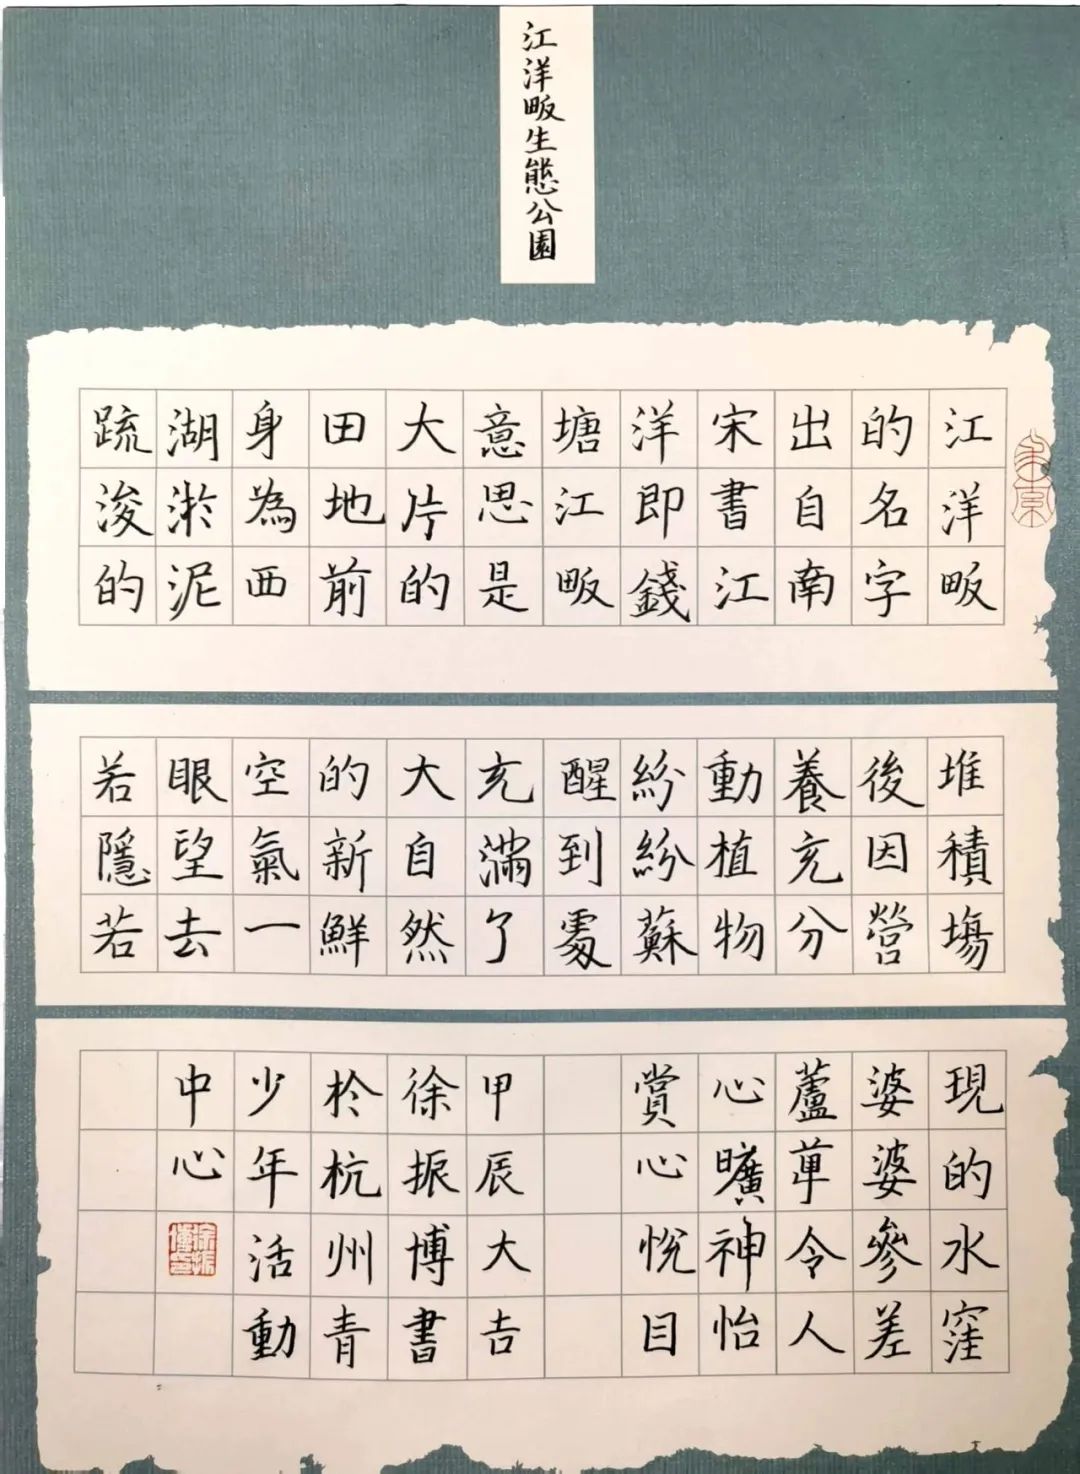 江洋畈生態公園
江洋畈
的名字
出自南
宋書江
洋即錢
塘江畈
意思是
大片的
田地前
身為西
湖淤泥
疏浚的
堆積塲
後因營
養充分
動植物
紛紛蘇
醒到處
充滿了
大自然
的新鮮
空氣一
眼望去
若隱若
現的水窪
婆婆參差
蘆葦令人
心曠神怡
賞心悅目
甲辰大吉
徐振博書
於杭州青
少年活動
中心
徐振博印